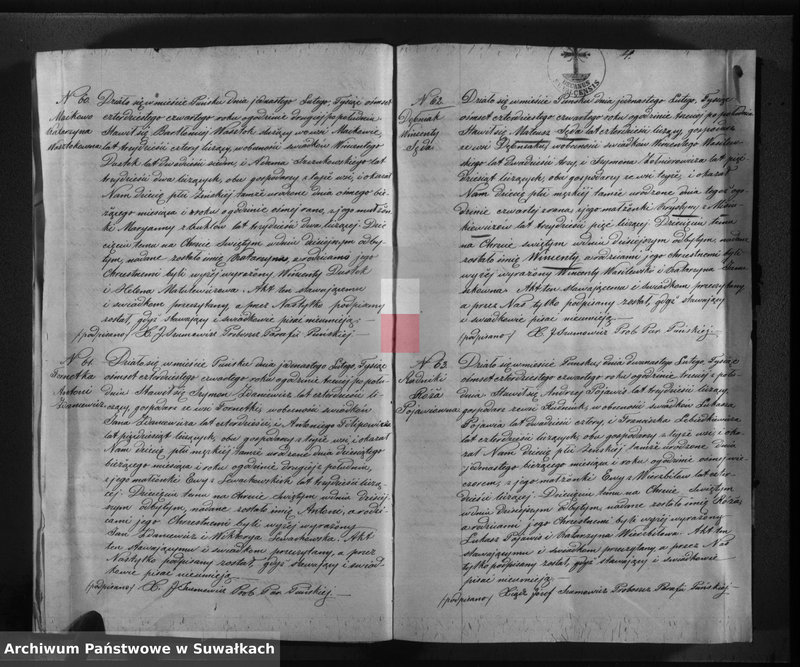 N 60.
Maćkowo
Katarzyna
Wasztokówna
Działo się w mieście Puńsku dnia jednastego Lutego, Tysiąc ośmset
czterdziestego czwartego roku o godzinie drugiej po południu
Stawił się Bartłomiej Wasztok służący w wsi Maćkowie,
lat trzydzieści cztery liczący, w obecności świadków Wincentego
Dustek lat dwadzieścia siedm, i Adama lat
trzydzieści dwa liczących, obu gospodarzy z tejże wsi, i okazał
Nam dziecię płci żeńskiej tamże urodzone dnia ósmego bie-
żącego miesiąca i roku o godzinie ósmej rano, z jego małżon-
ki Maryanny z lat trzydzieści dwa liczącej. Dzie-
cięciu temu na Chrzcie Świętym w dniu dzisiejszym odby-
tym, nadane zostało imię Katarzyna, a rodzicami jego
Chrzestnemi byli wyżej wyrażony Wincenty Dustek
i Helena Matulewiczowa. Akt ten stawającemu
i świadkom przeczytany, a przez Nas tylko podpisany
został, gdyż stawający i świadkowie pisać nieumieją.
(podpisano) X. J. Szumowicz Proboszcz Parafii Puńskiej
N 61.
Tomotka
Antoni
Zdanewicz
Działo się w mieście Puńsku dnia jednastego Lutego Tysiąc
ośmset czterdziestego czwartego roku o godzinie trzeciej po połu-
dniu Stawił się Szymon Zdanewicz lat czterdzieści li-
czący, gospodarz ze wsi Tomotki, w obecności świadków
Jana Zdanewicza lat czterdzieści, i Antoniego Filipowicza
lat pięćdziesiąt liczących, obu gospodarzy z tejże wsi, i okazał
Nam dziecię płci męzkiej tamże urodzone dnia dziesiątego
bieżącego miesiąca i roku o godzinie drugiej z południa,
z jego małżonki Ewy z Sewastkowskich lat trzydzieści liczą-
cej. Dziecięciu temu na Chrzcie Świętym w dniu dzisiej-
szym odbytym, nadane zostało imię Antoni, a rodzi-
cami jego Chrzestnemi byli wyżej wyrażony
Jan Zdanewicz i Wiktorya. Akt
ten stawającemu i świadkom przeczytany, a przez
Nas tylko podpisany został, gdyż stawający i świad-
kowie pisać nieumieją.
(podpisano) X. J. Szumowicz Prob. Par. Puńskiej
4.
N 62.
Dębniak
Wincenty
Szda
Działo się w mieście Puńsku dnia jednastego Lutego, Tysiąc
ośmset czterdziestego czwartego roku o godzinie trzeciej po południu
Stawił się Mateusz Szda lat czterdzieści liczący, gospodarz
ze wsi Dębniaka, w obecności świadków Wincentego Wasilew-
skiego lat dwadzieścia trzy, i Szymona lat pięć-
dziesiąt liczących, obu gospodarzy ze wsi tejże, i okazał
Nam dziecię płci męzkiej tamże urodzone dnia tegoż o go-
dzinie czwartej z rana, z jego małżonki Krystyny z Misiu-
kiewiczów lat trzydzieści pięć liczącej. Dziecięciu temu
na Chrzcie świętym w dniu dzisiejszym odbytym, nadane
zostało imię Wincenty, a rodzicami jego chrzestnemi byli
wyżej wyrażony Wincenty Wasilewski i Katarzyna
Akt ten stawającemu i świadkom przeczytany
a przez Nas tylko podpisany został, gdyż stawający
i świadkowie pisać nieumieją.
(podpisano) X. J. Szumowicz Prob. Par. Puńskiej.
N 63.
Róża
Pojawianna
Działo się w mieście Puńsku dnia dwunastego Lutego Tysiąc
ośmset czterdziestego czwartego roku o godzinie trzeciej z połu-
dnia Stawił się Andrzej Pojawis lat trzydzieści liczący
gospodarz ze wsi, w obecności świadków Łukasza
Pojawia lat dwadzieścia cztery, i Franciszka Lebiedkiewicza
lat czterdzieści liczących, obu gospodarzy z tejże wsi, i oka-
zał Nam dziecię płci żeńskiej tamże urodzone dnia
jednastego bieżącego miesiąca i roku o godzinie ósmej wie-
czorem, z jego małżonki Ewy z lat czter-
dzieści liczącej. Dziecięciu temu na Chrzcie świętym
w dniu dzisiejszym odbytym, nadane zostało imię Róża
a rodzicami jego Chrzestnemi byli wyżej wyrażony
Łukasz Pojawis i Katarzyna. Akt ten
stawającemu i świadkom przeczytany, a przez Nas
tylko podpisany został, gdyż stawający i świadkowie
pisać nieumieją.
(podpisano) Xiądz Józef Szumowicz Proboszcz Parafii Puńskiej.
Archiwum Państwowe w Suwałkach